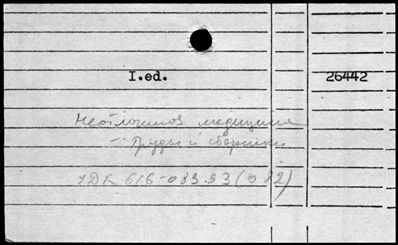 I.ed. 26442
Неотложная медицина
– Труды и сборники
УДК 616-083.93(082)